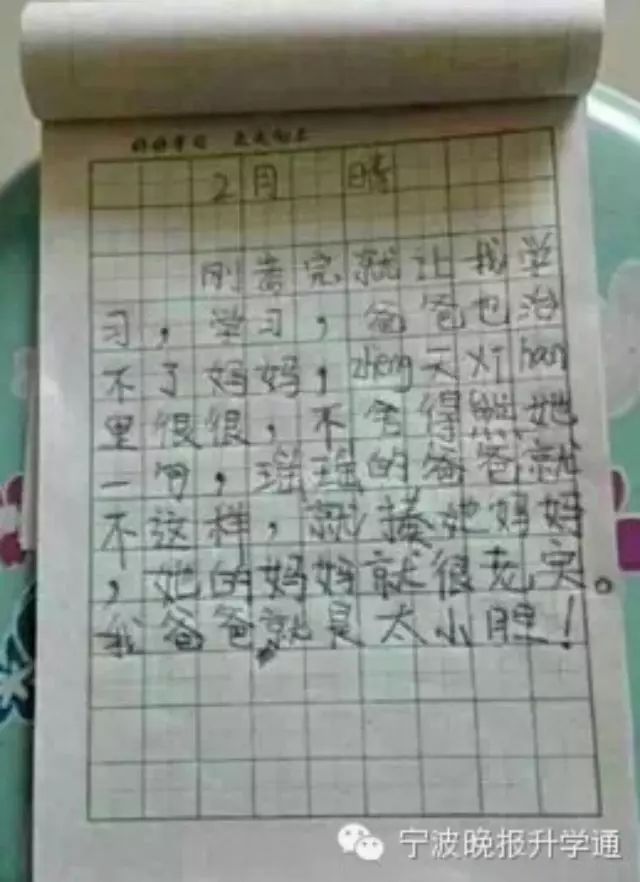 好好学习 天天向上
2月 晴
刚考完就让我学
习，学习，爸爸也治
不了妈妈，zheng天xi han
里很很，不舍得 她
一句，瑶瑶的爸爸就
不这样，就揍她妈妈
，她的妈妈就很老实。
我爸爸就是太小胆！
宁波晚报升学通